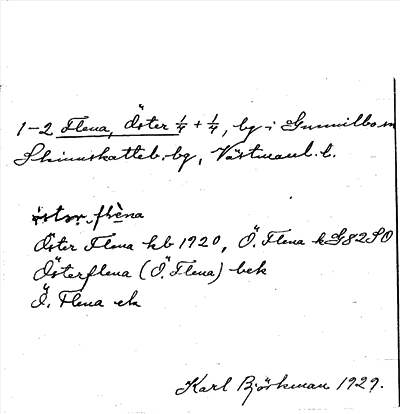 1-2 Flena, Öster 1/4 + 1/4, by i Gunnilbo sn
Skinnskatteb. bg, Västmanl. l.
öster flena
Öster Flena kb 1920, Ö. Flena kG82SO
Österflena (Ö. Flena) bek
Ö. Flena ek
Karl Björkman 1929.